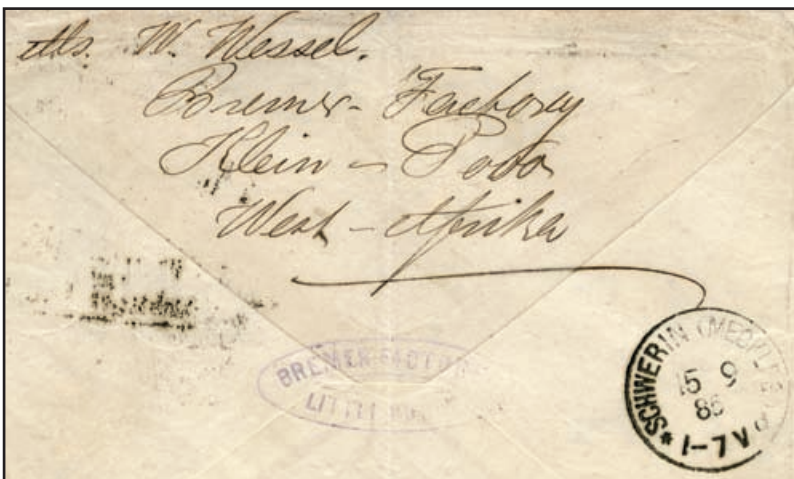 W. Wessel.
Bremer - Factory
Klein - Popo
West - Afrika
BREMER FACTORY
LITTLE
SCHWERIN (MECKLB)
15 9
86
1-7 V